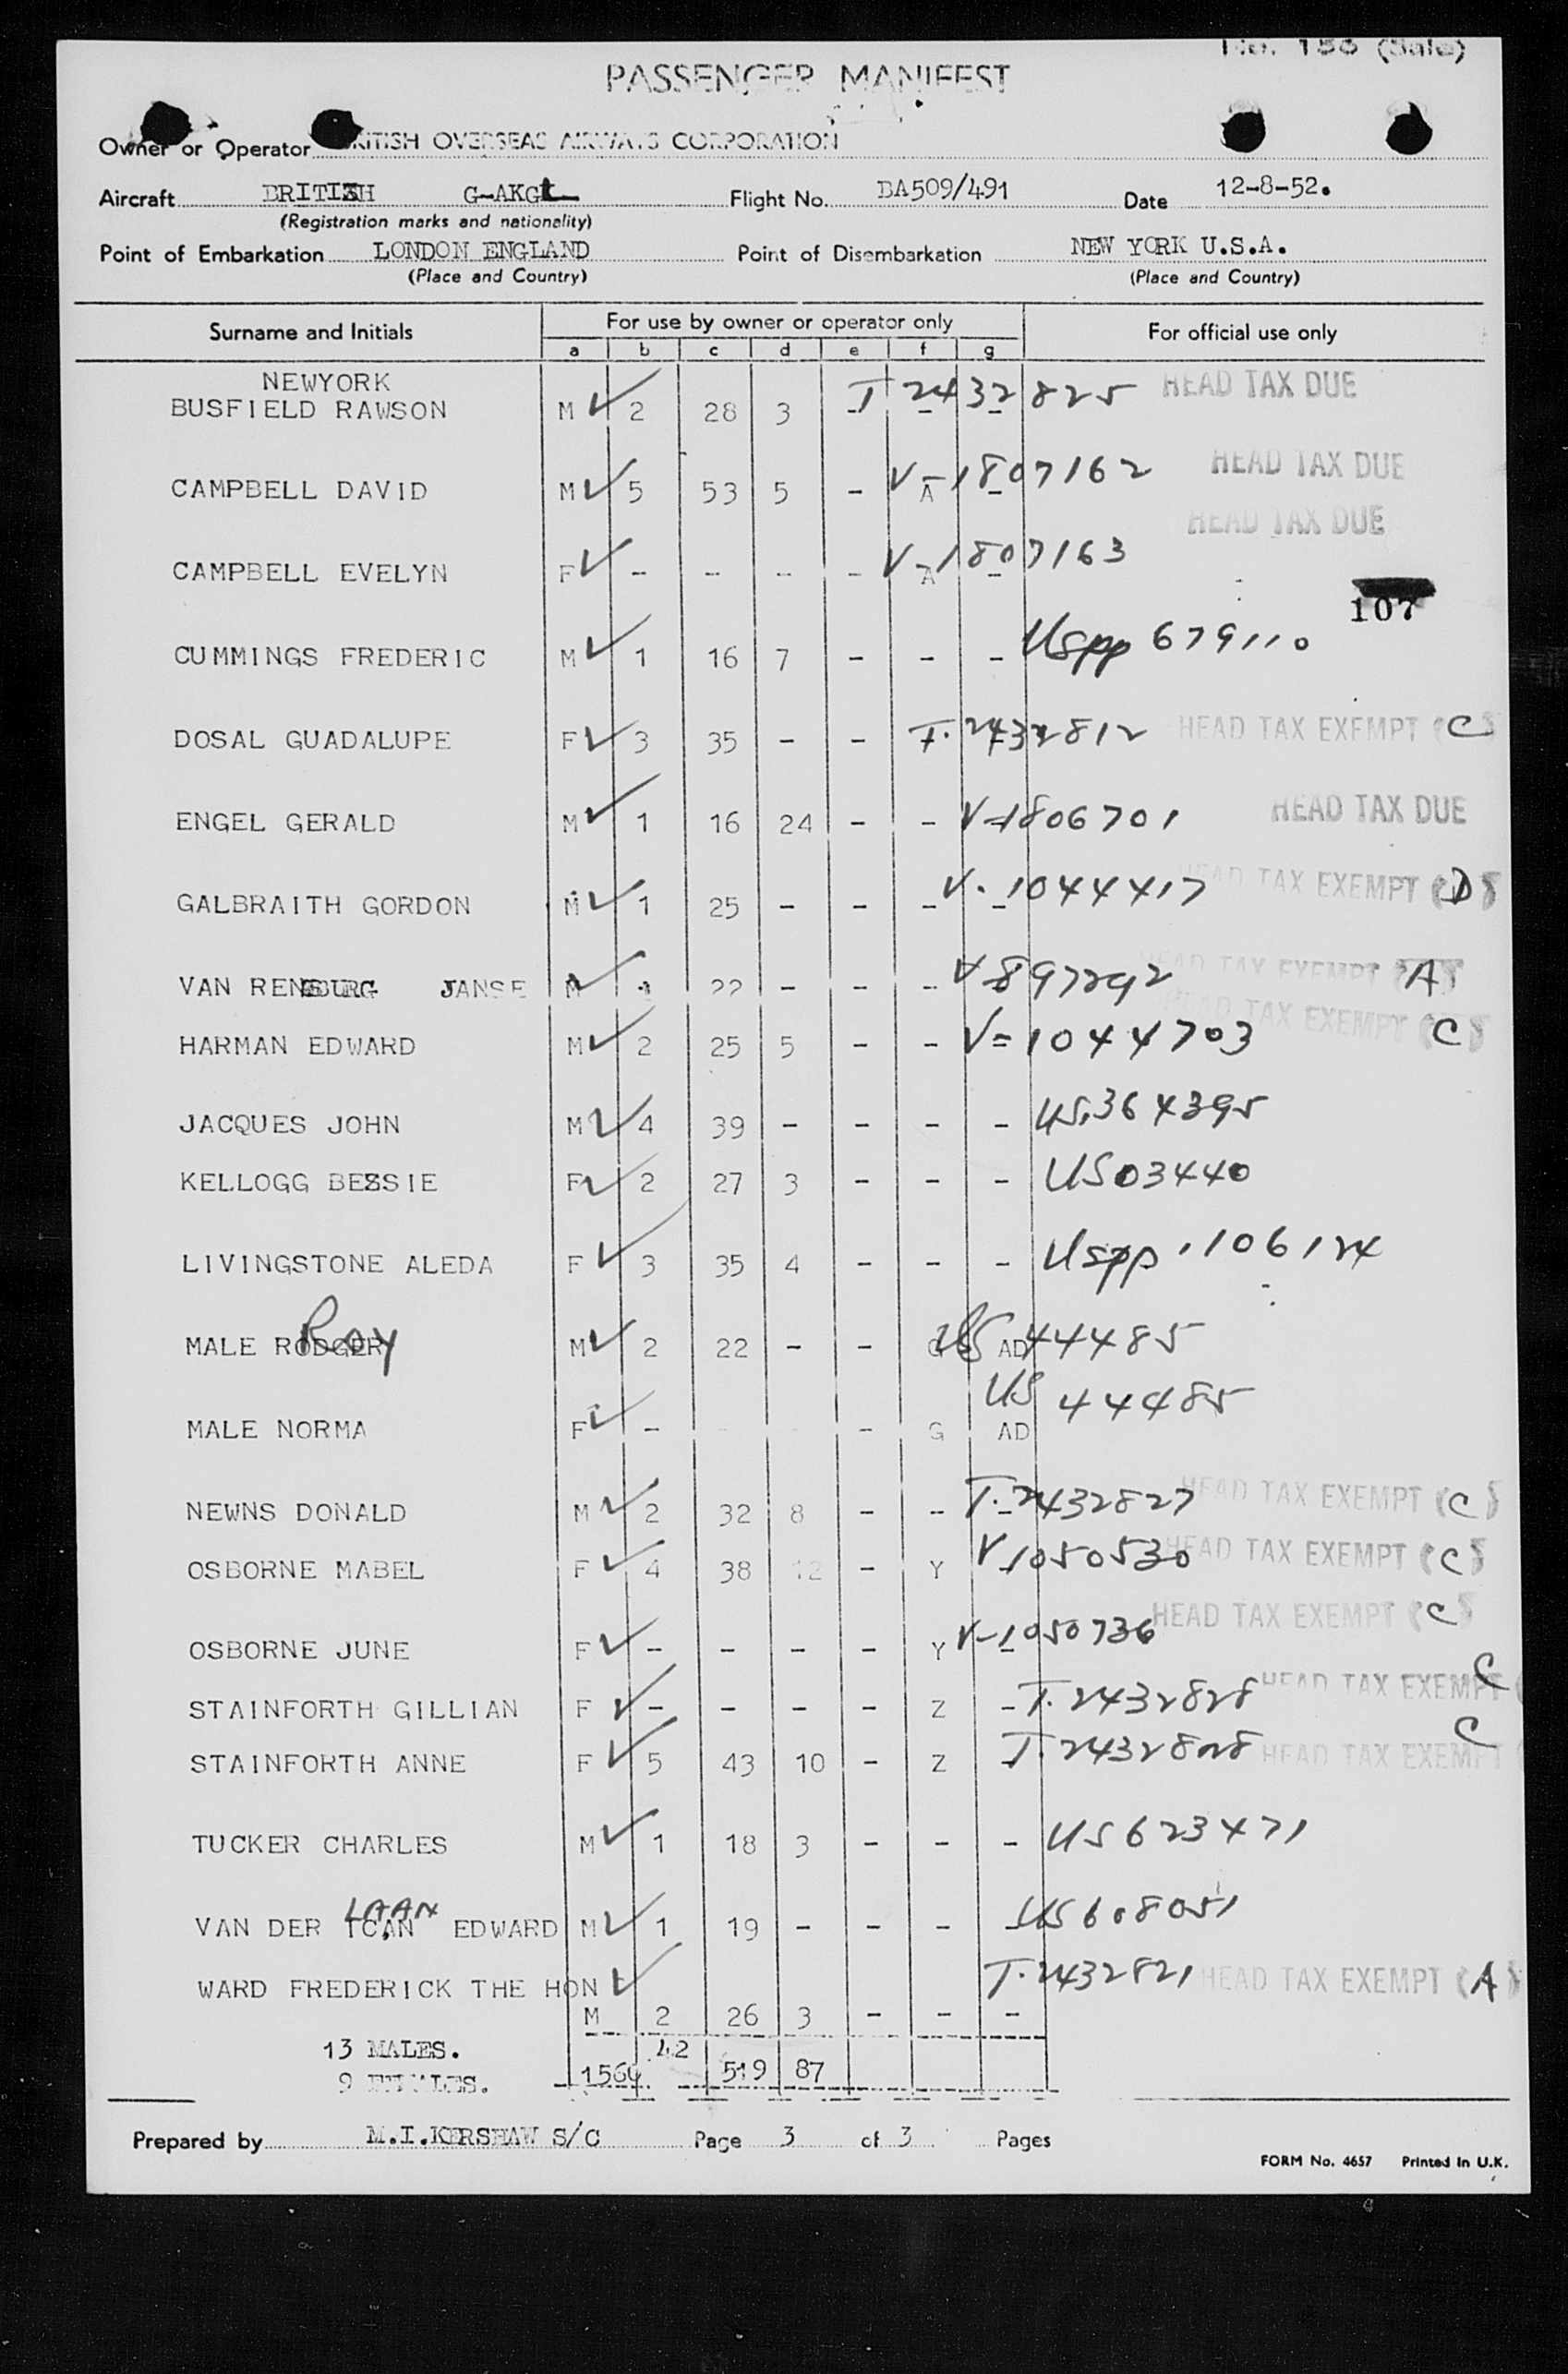 PASSENGER MANIFEST
Owner or Operator BRITISH OVERSEAS AIRWAYS CORPORATION
Aircraft BRITISH G-AKGL Flight No. BA509/491 Date 12-8-52.
(Registration marks and nationality)
Point of Embarkation LONDON ENGLAND Point of Disembarkation NEW YORK U.S.A.
(Place and Country) (Place and Country)
Surname and Initials For use by owner or operator only For official use only
a b c d e f g
NEWYORK
BUSFIELD RAWSON M 2 28 3 - - - T 2432825 HEAD TAX DUE
CAMPBELL DAVID M 5 53 5 - A - V-1807162 HEAD TAX DUE
HEAD TAX DUE
CAMPBELL EVELYN F - - - - A - V-1807163
107
CUMMINGS FREDERIC M 1 16 7 - - - USpp 679110
DOSAL GUADALUPE F 3 35 - - - - T. 2432812 HEAD TAX EXEMPT (C)
ENGEL GERALD M 1 16 24 - - - V-1806701 HEAD TAX DUE
GALBRAITH GORDON M 1 25 - - - - V. 1044417 HEAD TAX EXEMPT (D)
VAN RENSBURG JANSE M 1 22 - - - - V 897292 HEAD TAX EXEMPT (A)
HARMAN EDWARD M 2 25 5 - - - V-1044703 HEAD TAX EXEMPT (C)
JACQUES JOHN M 4 39 - - - - US.364395
KELLOGG BESSIE F 2 27 3 - - - US03440
LIVINGSTONE ALEDA F 3 35 4 - - - USpp 1106124
MALE RODGER Roy M 2 22 - - G AD US 44485
MALE NORMA F - - - - G AD US 44485
NEWNS DONALD M 2 32 8 - - - T. 2432827 HEAD TAX EXEMPT (C)
OSBORNE MABEL F 4 38 12 - Y V-1050530 HEAD TAX EXEMPT (C)
OSBORNE JUNE F - - - - Y - V-1050736 HEAD TAX EXEMPT (C)
STAINFORTH GILLIAN F - - - - Z - T. 2432828 HEAD TAX EXEMPT C
STAINFORTH ANNE F 5 43 10 - Z - T. 2432828 HEAD TAX EXEMPT C
TUCKER CHARLES M 1 18 3 - - - US 623471
LAAN
VAN DER EDWARD M 1 19 - - - - US 608051
WARD FREDERICK THE HON T. 2432821 HEAD TAX EXEMPT (A)
M 2 26 3 - - -
13 MALES. 42
9 FEMALES. 1560 519 87
Prepared by M.I.KERSHAW S/C Page 3 of 3 Pages
FORM No. 4657 Printed in U.K.